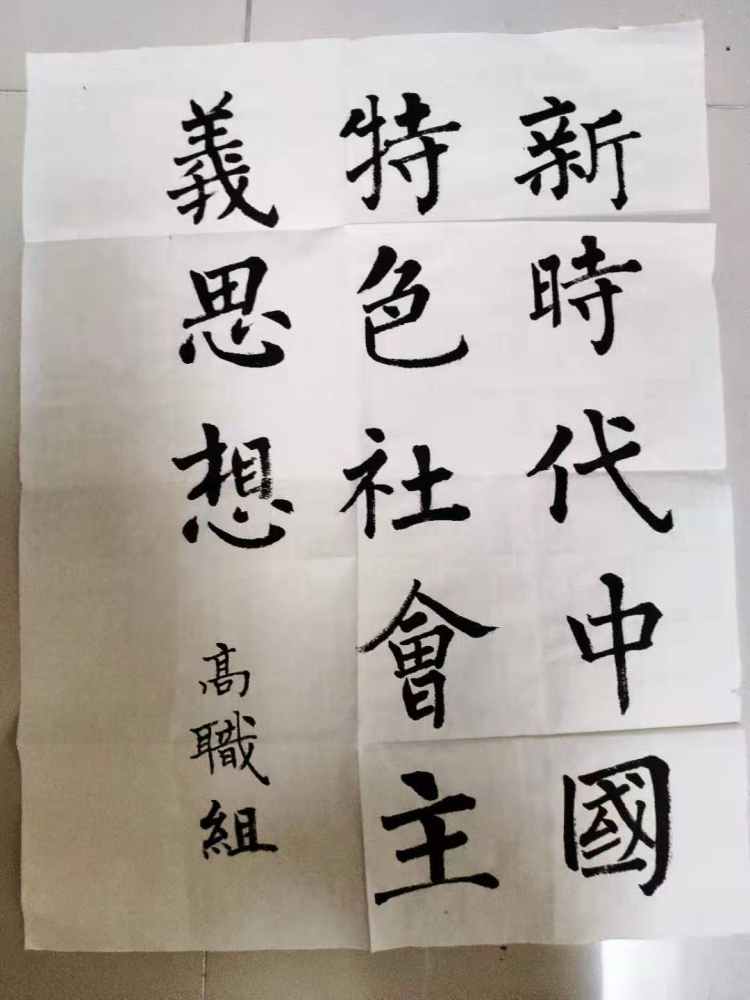 新時代中國
特色社會主
義思想
髙職組